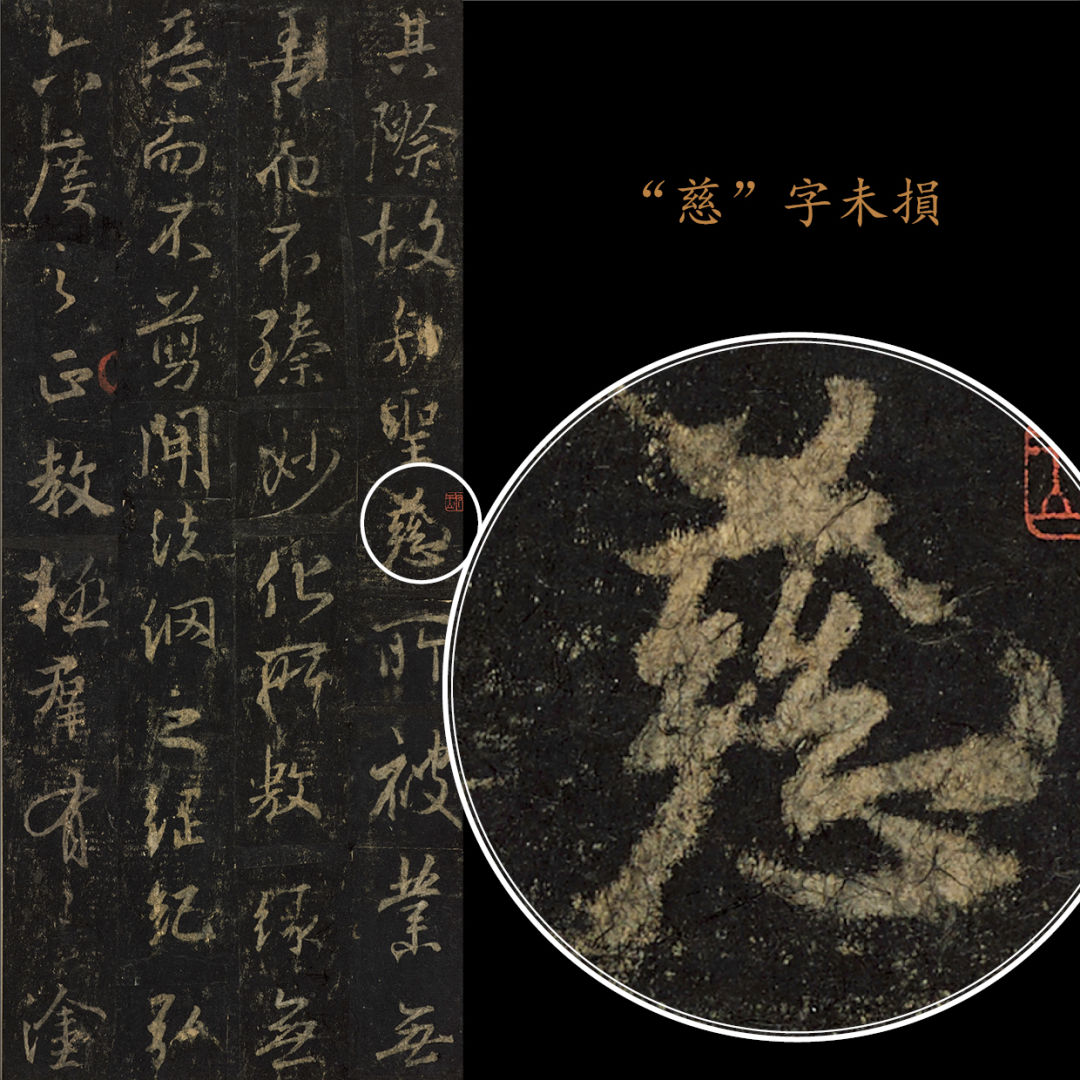 “慈”字未損
其際故知聖慈所被業無
善而不臻妙化所敷緣無
惡而不剪開法網之綱紀弘
六度之正教拯羣有之塗